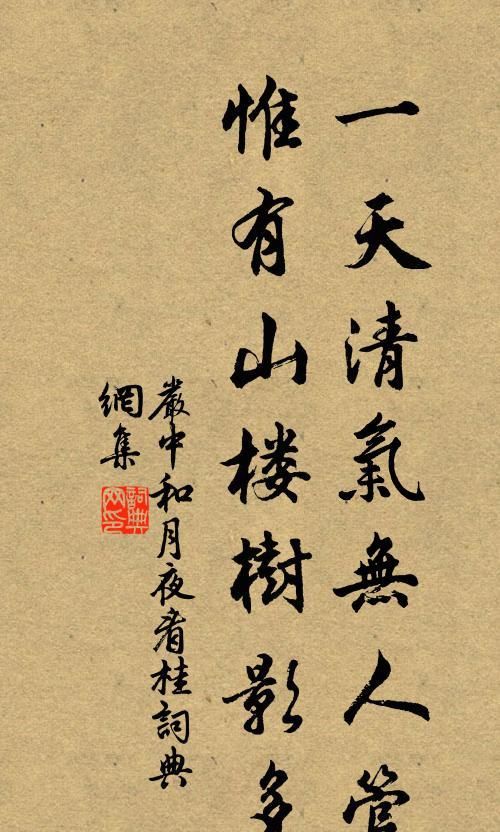 一天清氣無人管
惟有山楼樹影多
嚴中和月夜看桂詞典
網集
詞典
网印